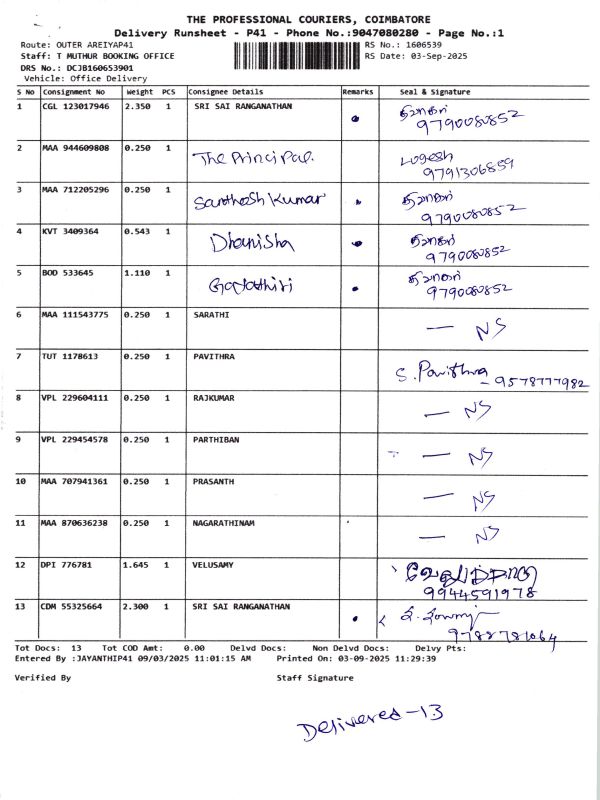 THE PROFESSIONAL COURIERS, COIMBATORE
Delivery Runsheet - P41 - Phone No.:9047080280 - Page No.:1
Route: OUTER AREIYAP41 RS No.: 1606539
Staff: T MUTHUR BOOKING OFFICE RS Date: 03-Sep-2025
DRS No.: DCJB160653901
Vehicle: Office Delivery
S No Consignment No Weight PCS Consignee Details Remarks Seal & Signature
1 CGL 123017946 2.350 1 SRI SAI RANGANATHAN
9790080852
2 MAA 944609808 0.250 1 The Principal. Logesh
9791306859
3 MAA 712205296 0.250 1 Santhosh Kumar
9790080852
4 KVT 3409364 0.543 1 Dhanisha
9790080852
5 BOD 533645 1.110 1 Gayathiri
9790080852
6 MAA 111543775 0.250 1 SARATHI — NS
7 TUT 1178613 0.250 1 PAVITHRA S. Pavithra
- 9578777982
8 VPL 229604111 0.250 1 RAJKUMAR — NS
9 VPL 229454578 0.250 1 PARTHIBAN — NS
10 MAA 707941361 0.250 1 PRASANTH — NS
11 MAA 870636238 0.250 1 NAGARATHINAM — NS
12 DPI 776781 1.645 1 VELUSAMY
9944591978
13 CDM 55325664 2.300 1 SRI SAI RANGANATHAN
9788781064
Tot Docs: 13 Tot COD Amt: 0.00 Delvd Docs: Non Delvd Docs: Delvy Pts:
Entered By :JAYANTHIP41 09/03/2025 11:01:15 AM Printed On: 03-09-2025 11:29:39
Verified By Staff Signature
Delivered - 13